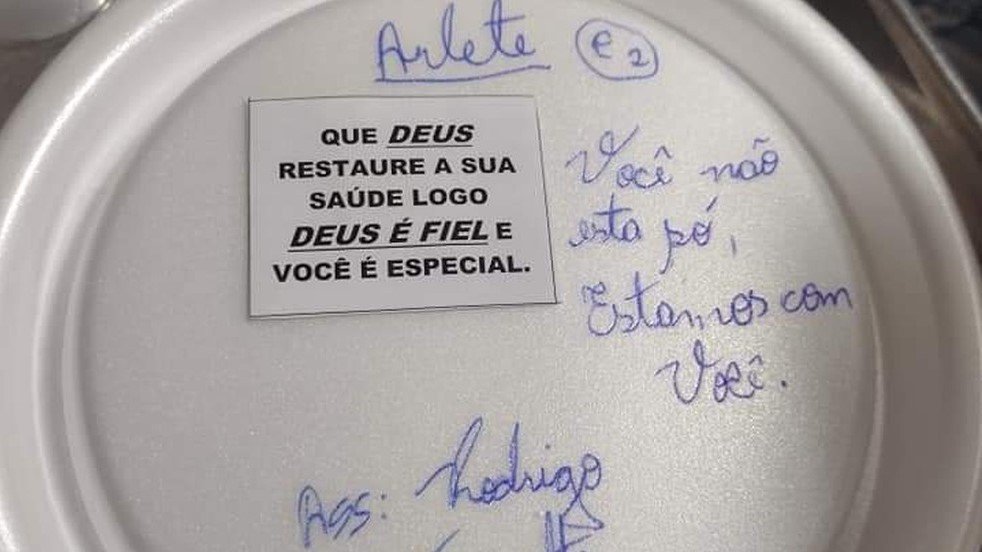 Arlete e2
QUE DEUS
RESTAURE A SUA
SAÚDE LOGO
DEUS É FIEL E
VOCÊ É ESPECIAL.
Você não
esta pó,
Estamos com
Você.
Ass: Rodrigo